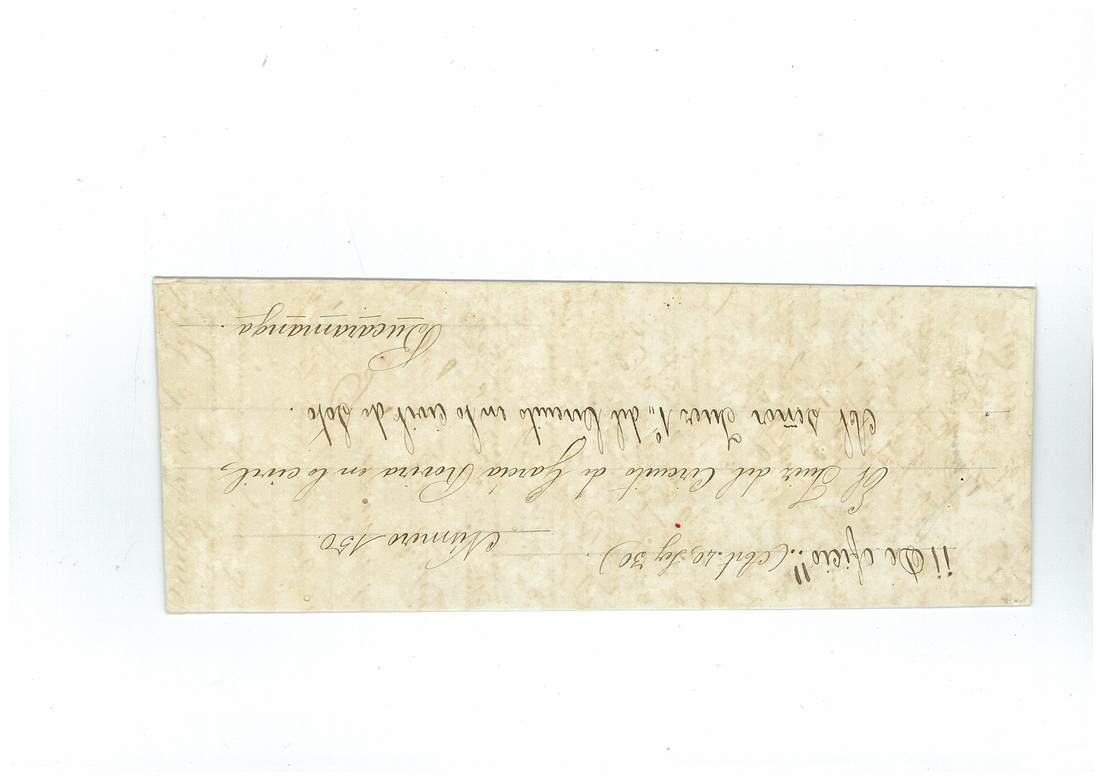 ¡¡De oficio!! (Art. 20, Ley 30). Número 150.
El Juez del Circuito de García Rovira en lo civil,
Al señor Juez 1º del Circuito en lo Civil de Soto.
Bucaramanga.